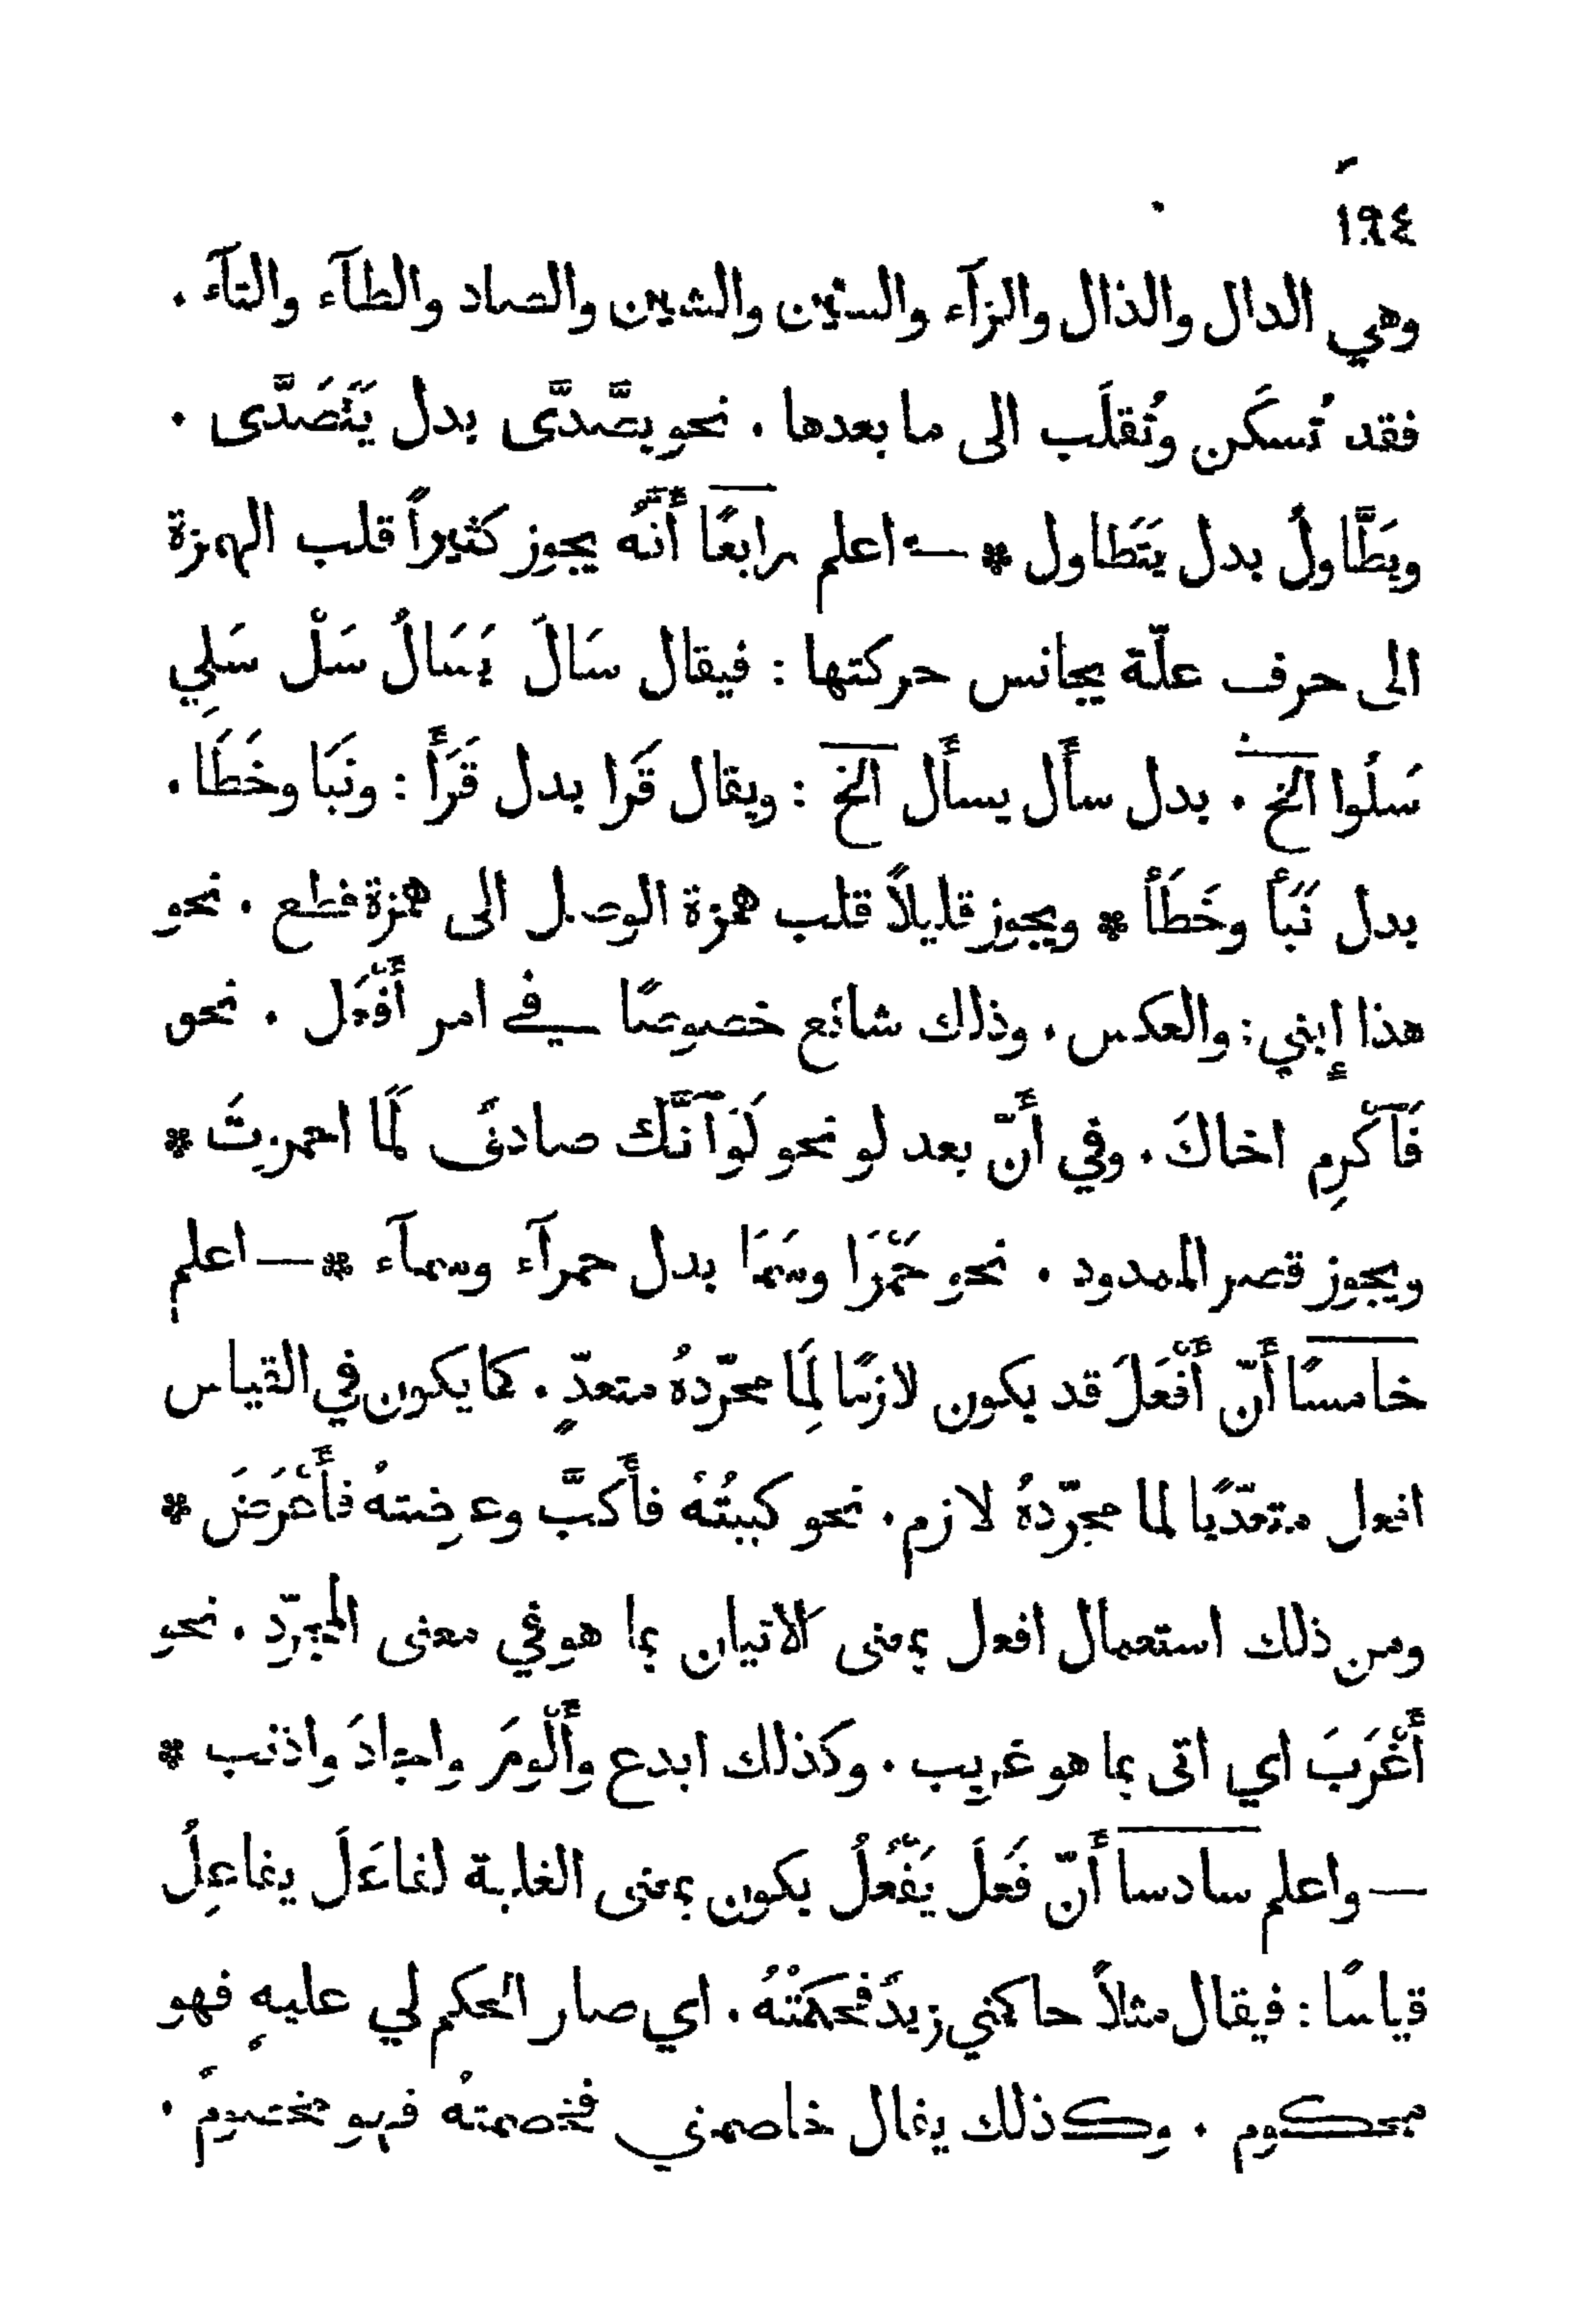 ١٩٤
وهي الدال والذال والزآء والسين والشين والصاد والطآء والثآء .
فقد تُسكَن وتُقلَب الى ما بعدها . نحو يصَّدَّى بدل يَتَصَدَّى .
ويَطَّاولُ بدل يَتَطاول * — اعلم رابعًا أَنَّهُ يجوز كثيراً قلب الهمزة
الى حرف علّة يجانس حركتها : فيقال سَالَ يَسَالُ سَلْ سَلِي
سَلُوا الخ . بدل سأَل يسأَل الخ : ويقال قَرا بدل قَرَأَ : ونَبَا وخَطَا .
بدل نَبَأَ وخَطَأَ * ويجوز قليلاً قلب همزة الوصل الى همزة قطع . نحو
هذا إِبني : والعكس . وذلك شائع خصوصًا في امر أَفْعَل . نحو
فَآكْرِم اخاكَ . وفي أَنّ بعد لو نحو لَوَ آنَّك صادقٌ لَمَا احمريتَ *
ويجوز قصر الممدود . نحو حَمْرَا وسَمَا بدل حمرآء وسمآء * — اعلم
خامسًا أَنّ أَفْعَلَ قد يكون لازمًا لِمَا مجرّدهُ متعدٍّ . كما يكون في القياس
افعل متعدّيًا لما مجرّدهُ لازم . نحو كببتُهُ فأَكبَّ وعرضتهُ فأَعْرَضَ *
ومن ذلك استعمال افعل بمعنى الاتيان بما هو في معنى المجرّد . نحو
أَغْرَبَ اي اتى بما هو غريب . وكذلك ابدع وأَلْومَ واجادَ واذنب *
— واعلم سادسا أَنّ فَعَلَ يَفْعُلُ يكون بمعنى الغلبة لفاعَلَ يفاعِلُ
قياسًا : فيقال مثلاً حاكمني زيدٌ فحكمْتُهُ . اي صار الحكم لي عليهِ فهو
محكوم . وكذلك يقال خاصمني فخصمتهُ فهو مخصومٌ .